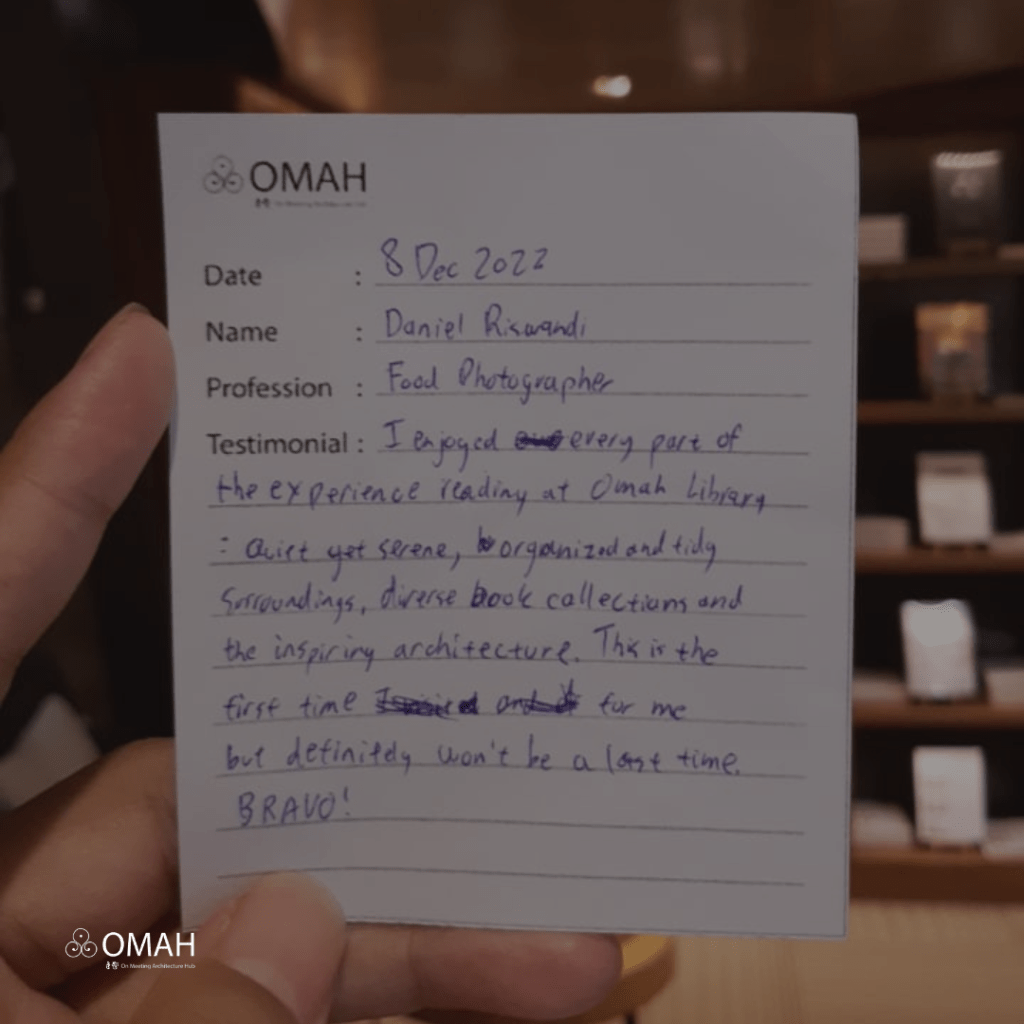 OMAH
On Meeting Architecture Hub
Date : 8 Dec 2022
Name : Daniel Riswandi
Profession : Food Photographer
Testimonial : I enjoyed every part of
the experience reading at Omah Library
: Quiet yet serene, organized and tidy
surroundings, diverse book collections and
the inspiring architecture. This is the
first time for me
but definitely won't be a last time.
BRAVO!
OMAH
On Meeting Architecture Hub